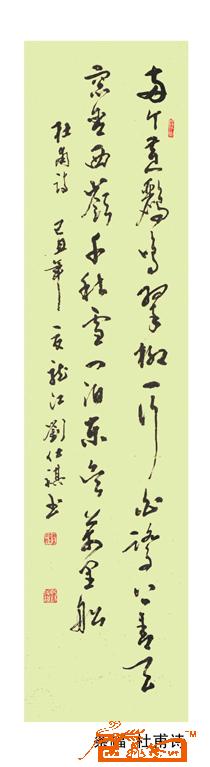 两个黄鹂鸣翠柳一行白鹭上青天
窗含西岭千秋雪门泊东吴万里船
杜甫诗 己丑年夏龙江刘仕祺书
条幅 杜甫诗